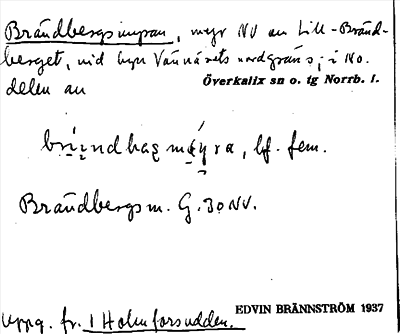 Brändbergsmyran, myr NV om Lill-Bränd-
berget, vid byn Vännäsets nordgräns; i No.
Överkalix sn o. tg Norrb. l.
delen av
bf. fem.
Brändbergsm. G. 30 NV.
EDVIN BRÄNNSTRÖM 1937
Uppg. fr. 1 Holmforsudden.